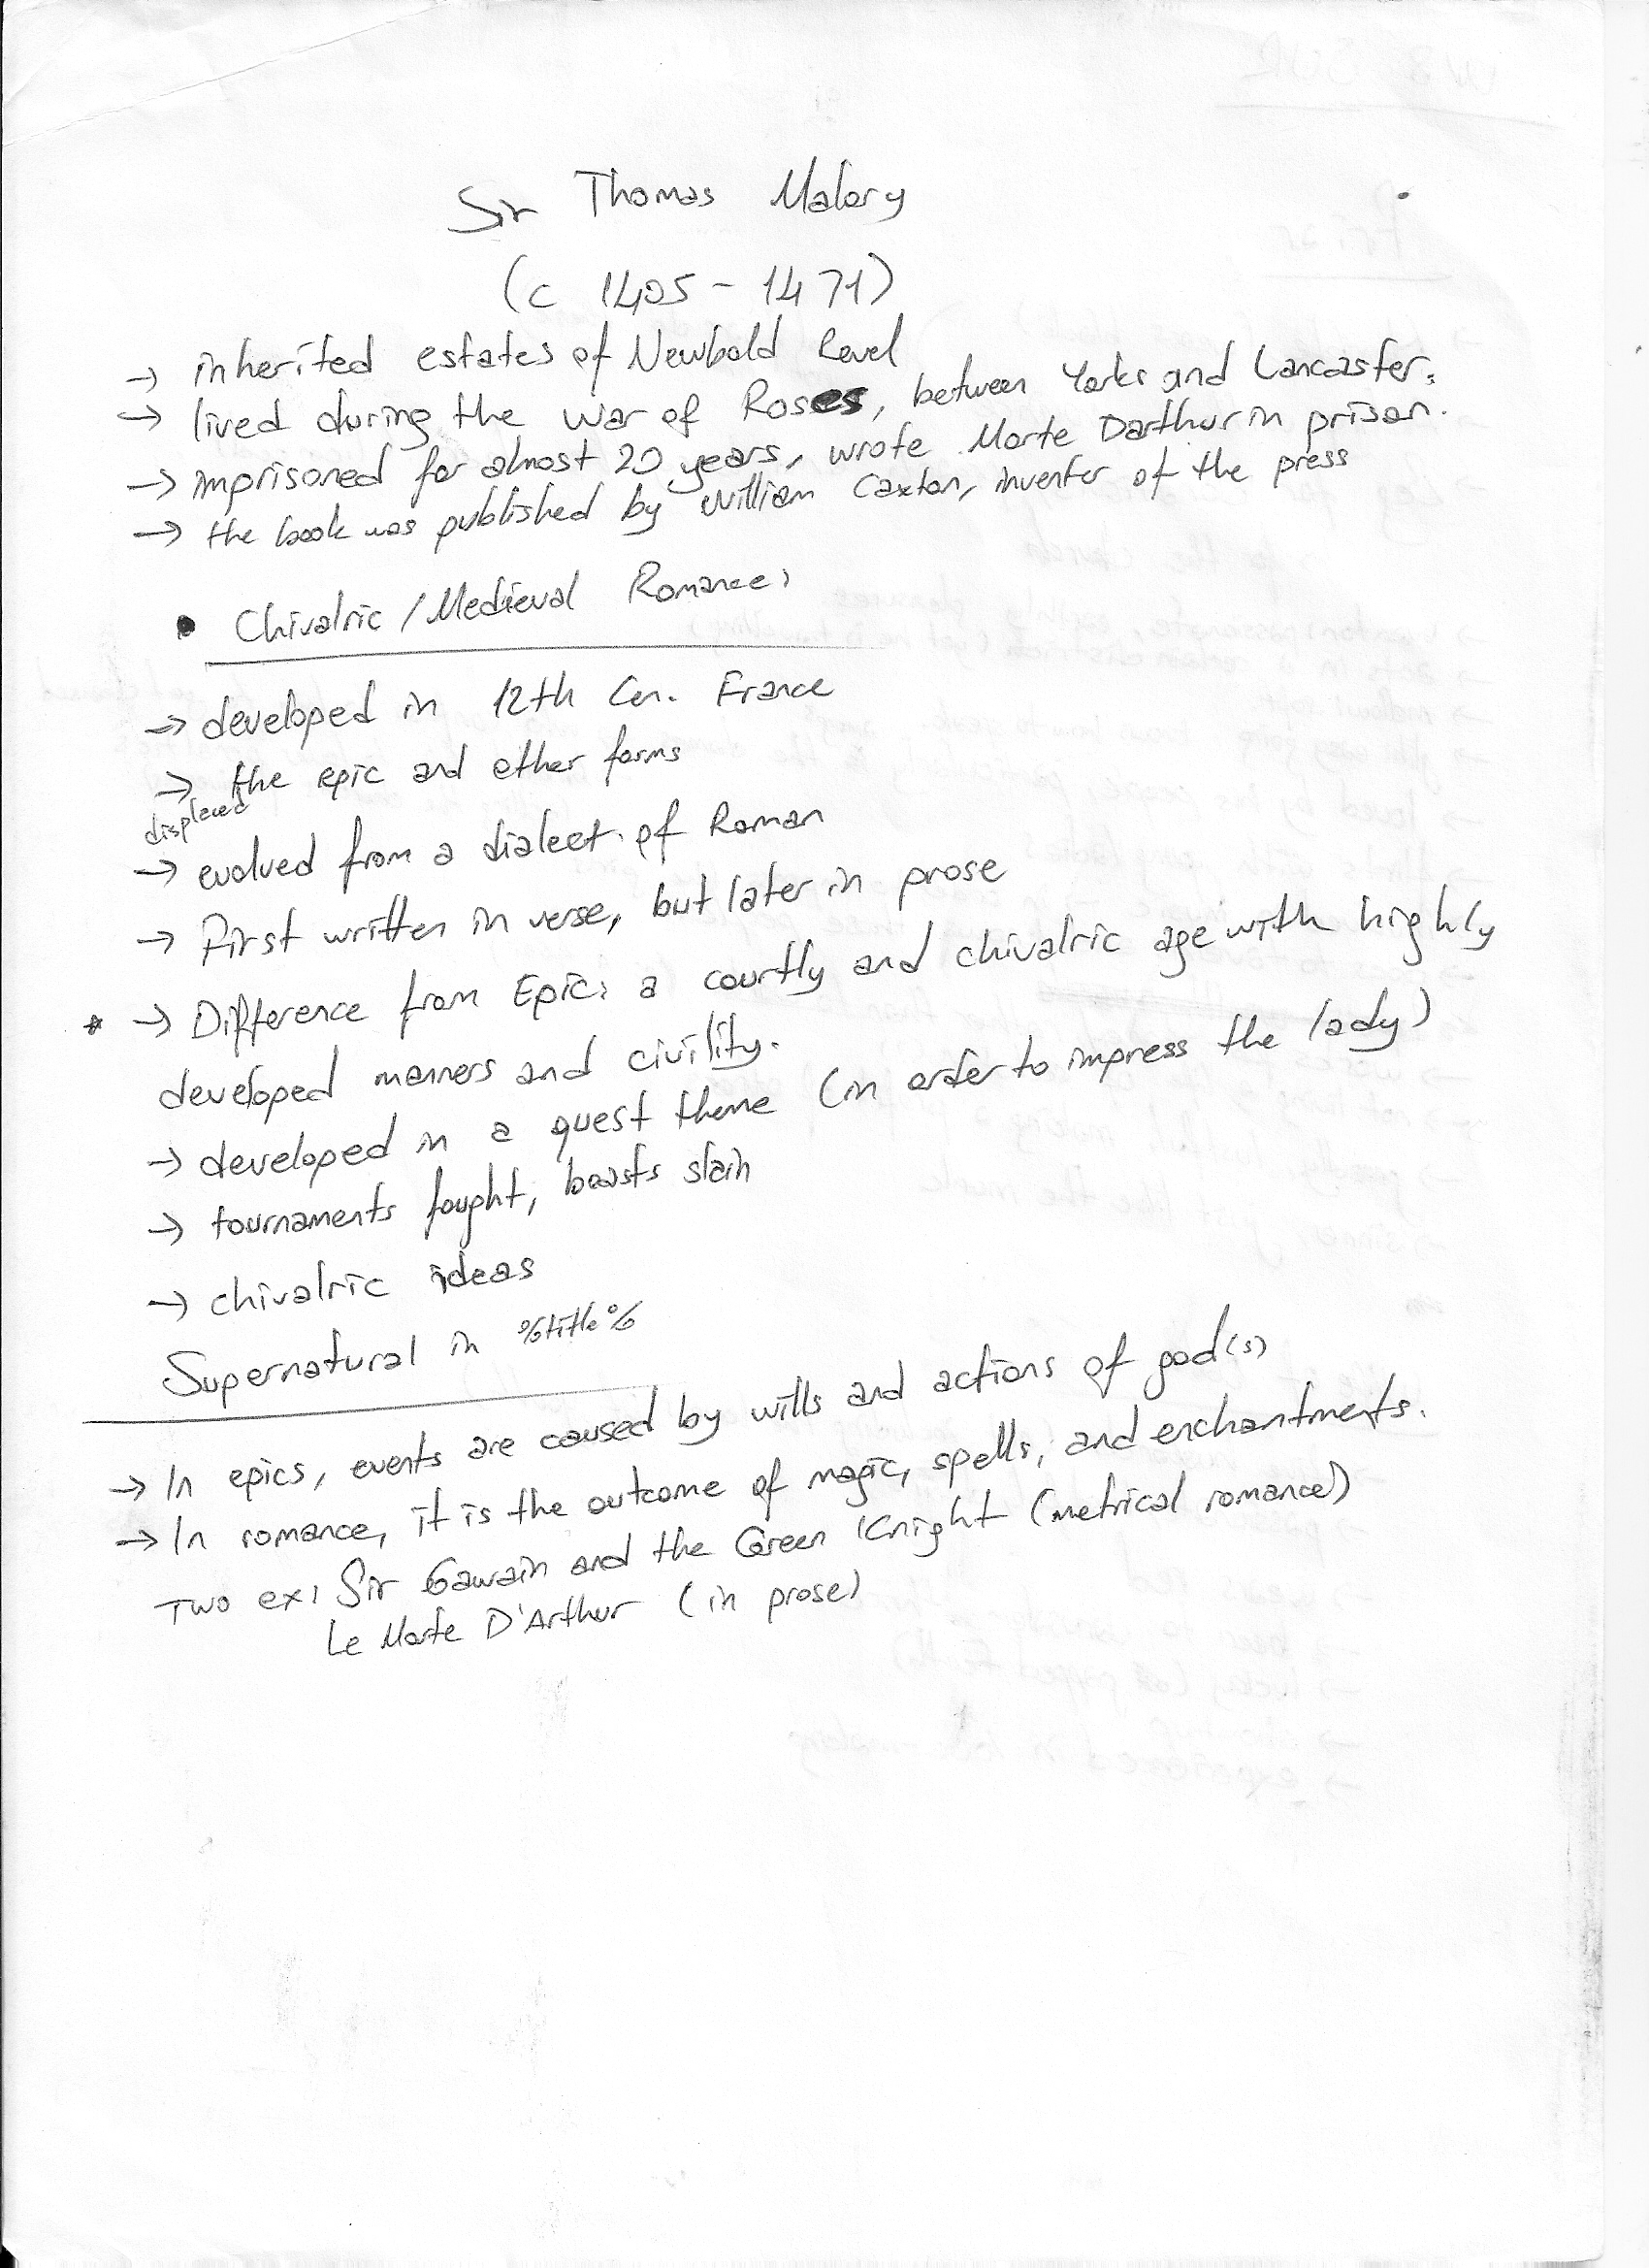 Sir Thomas Malory
(c 1405 - 1471)
→ inherited estates of Newbold Revel
→ lived during the War of Roses, between Yorks and Lancaster.
→ imprisoned for almost 20 years, wrote Morte Darthur in prison.
→ the book was published by William Caxton, inventer of the press
• Chivalric / Medieval Romance:
→ developed in 12th Cen. France
→ the epic and other forms
displaced
→ evolved from a dialect of Roman
→ First written in verse, but later in prose
* → Difference from Epic: a courtly and chivalric age with highly
developed manners and civility.
→ developed in a quest theme (in order to impress the lady)
→ tournaments fought, beasts slain
→ chivalric ideas
Supernatural in %title%
→ In epics, events are caused by wills and actions of god(s)
→ In romance, it is the outcome of magic, spells, and enchantments.
Two ex: Sir Gawain and the Green Knight (metrical romance)
Le Morte D'Arthur (in prose)